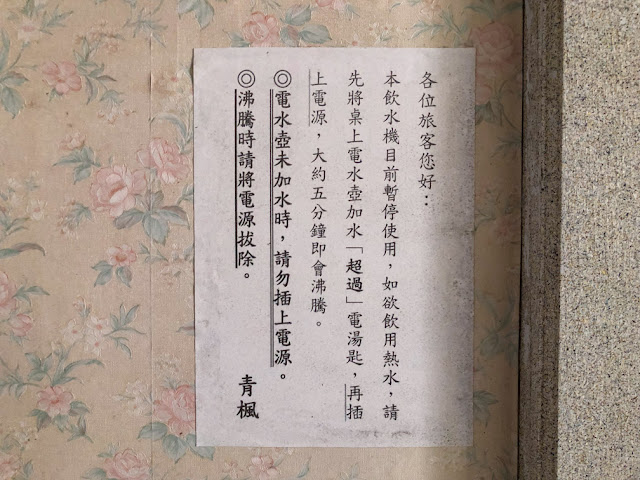 各位旅客您好：
本飲水機目前暫停使用，如欲飲用熱水，請
先將桌上電水壺加水「超過」電湯匙，再插
上電源，大約五分鐘即會沸騰。
◎電水壺未加水時，請勿插上電源。
◎沸騰時請將電源拔除。
青楓